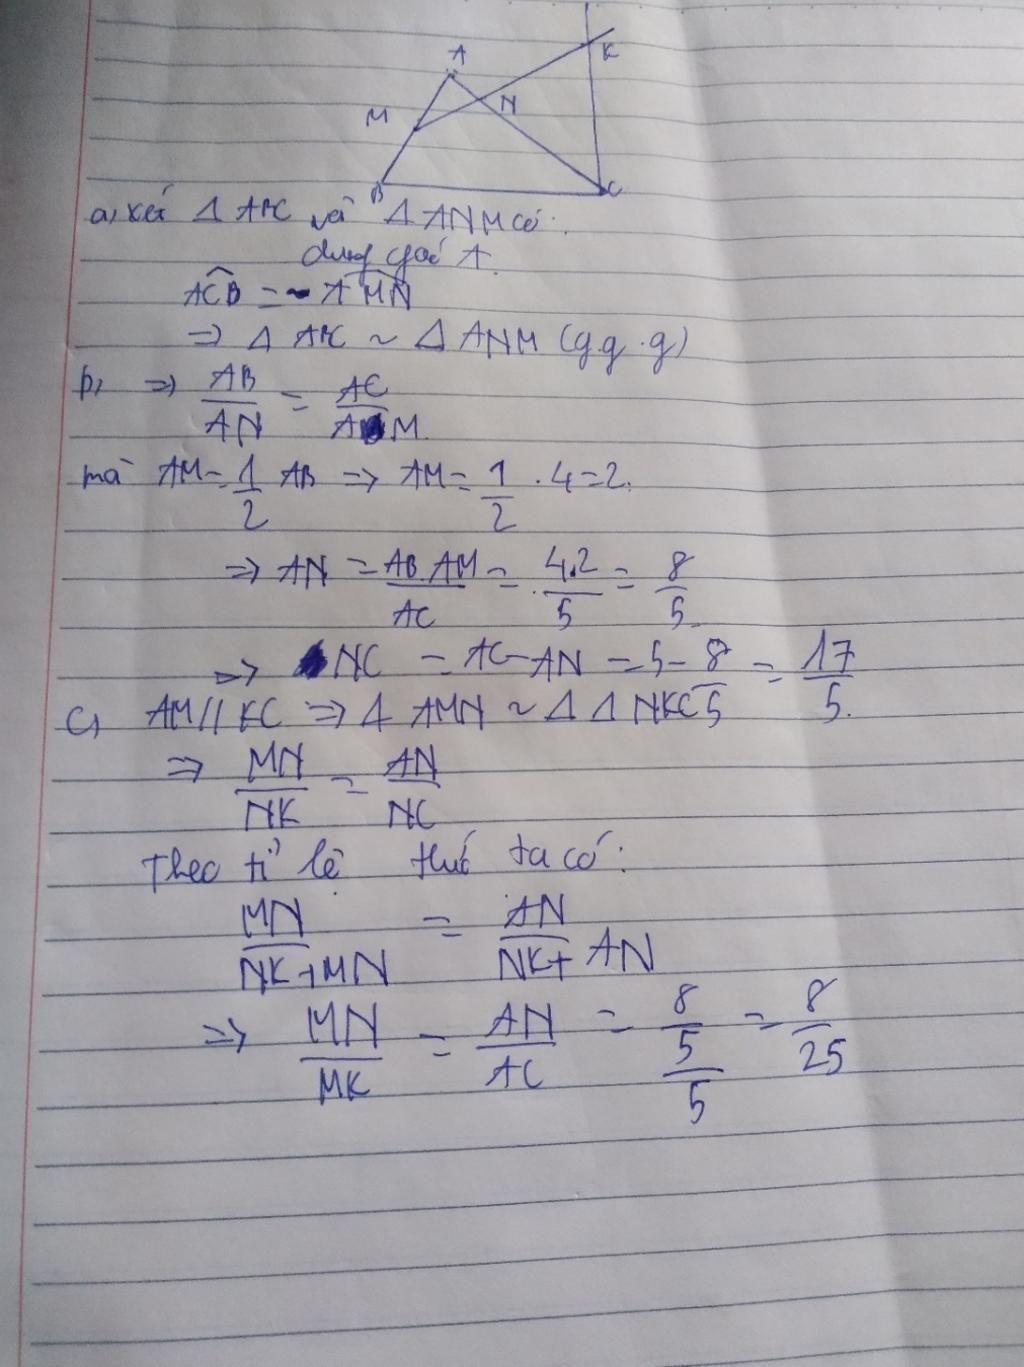 A
K
M
N
B
C
a, xét Δ ABC và Δ ANM có:
chung góc A.
ACB = AMN
=> Δ ABC ~ Δ ANM (g.g.g)
b, => AB/AN = AC/AM
mà AM = 1/2 AB => AM = 1/2 . 4 = 2.
=> AN = AB.AM/AC = 4.2/5 = 8/5
=> NC = AC - AN = 5 - 8/5 = 17/5.
c, AM // KC => Δ AMN ~ Δ Δ NKC
=> MN/NK = AN/NC
Theo tỉ lệ thức ta có:
MN/NK+MN = AN/NK+AN
=> MN/MK = AN/AC = 8/5/5 = 8/25